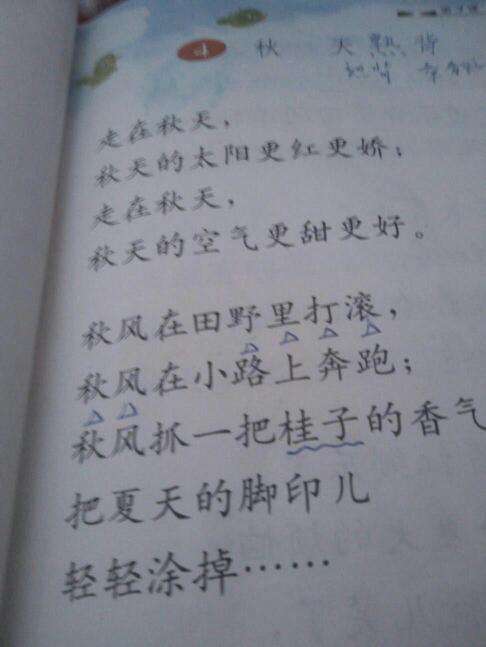 4 秋 天 熟背
走在秋天，
秋天的太阳更红更娇；
走在秋天，
秋天的空气更甜更好。
秋风在田野里打滚，
秋风在小路上奔跑；
秋风抓一把桂子的香气
把夏天的脚印儿
轻轻涂掉……